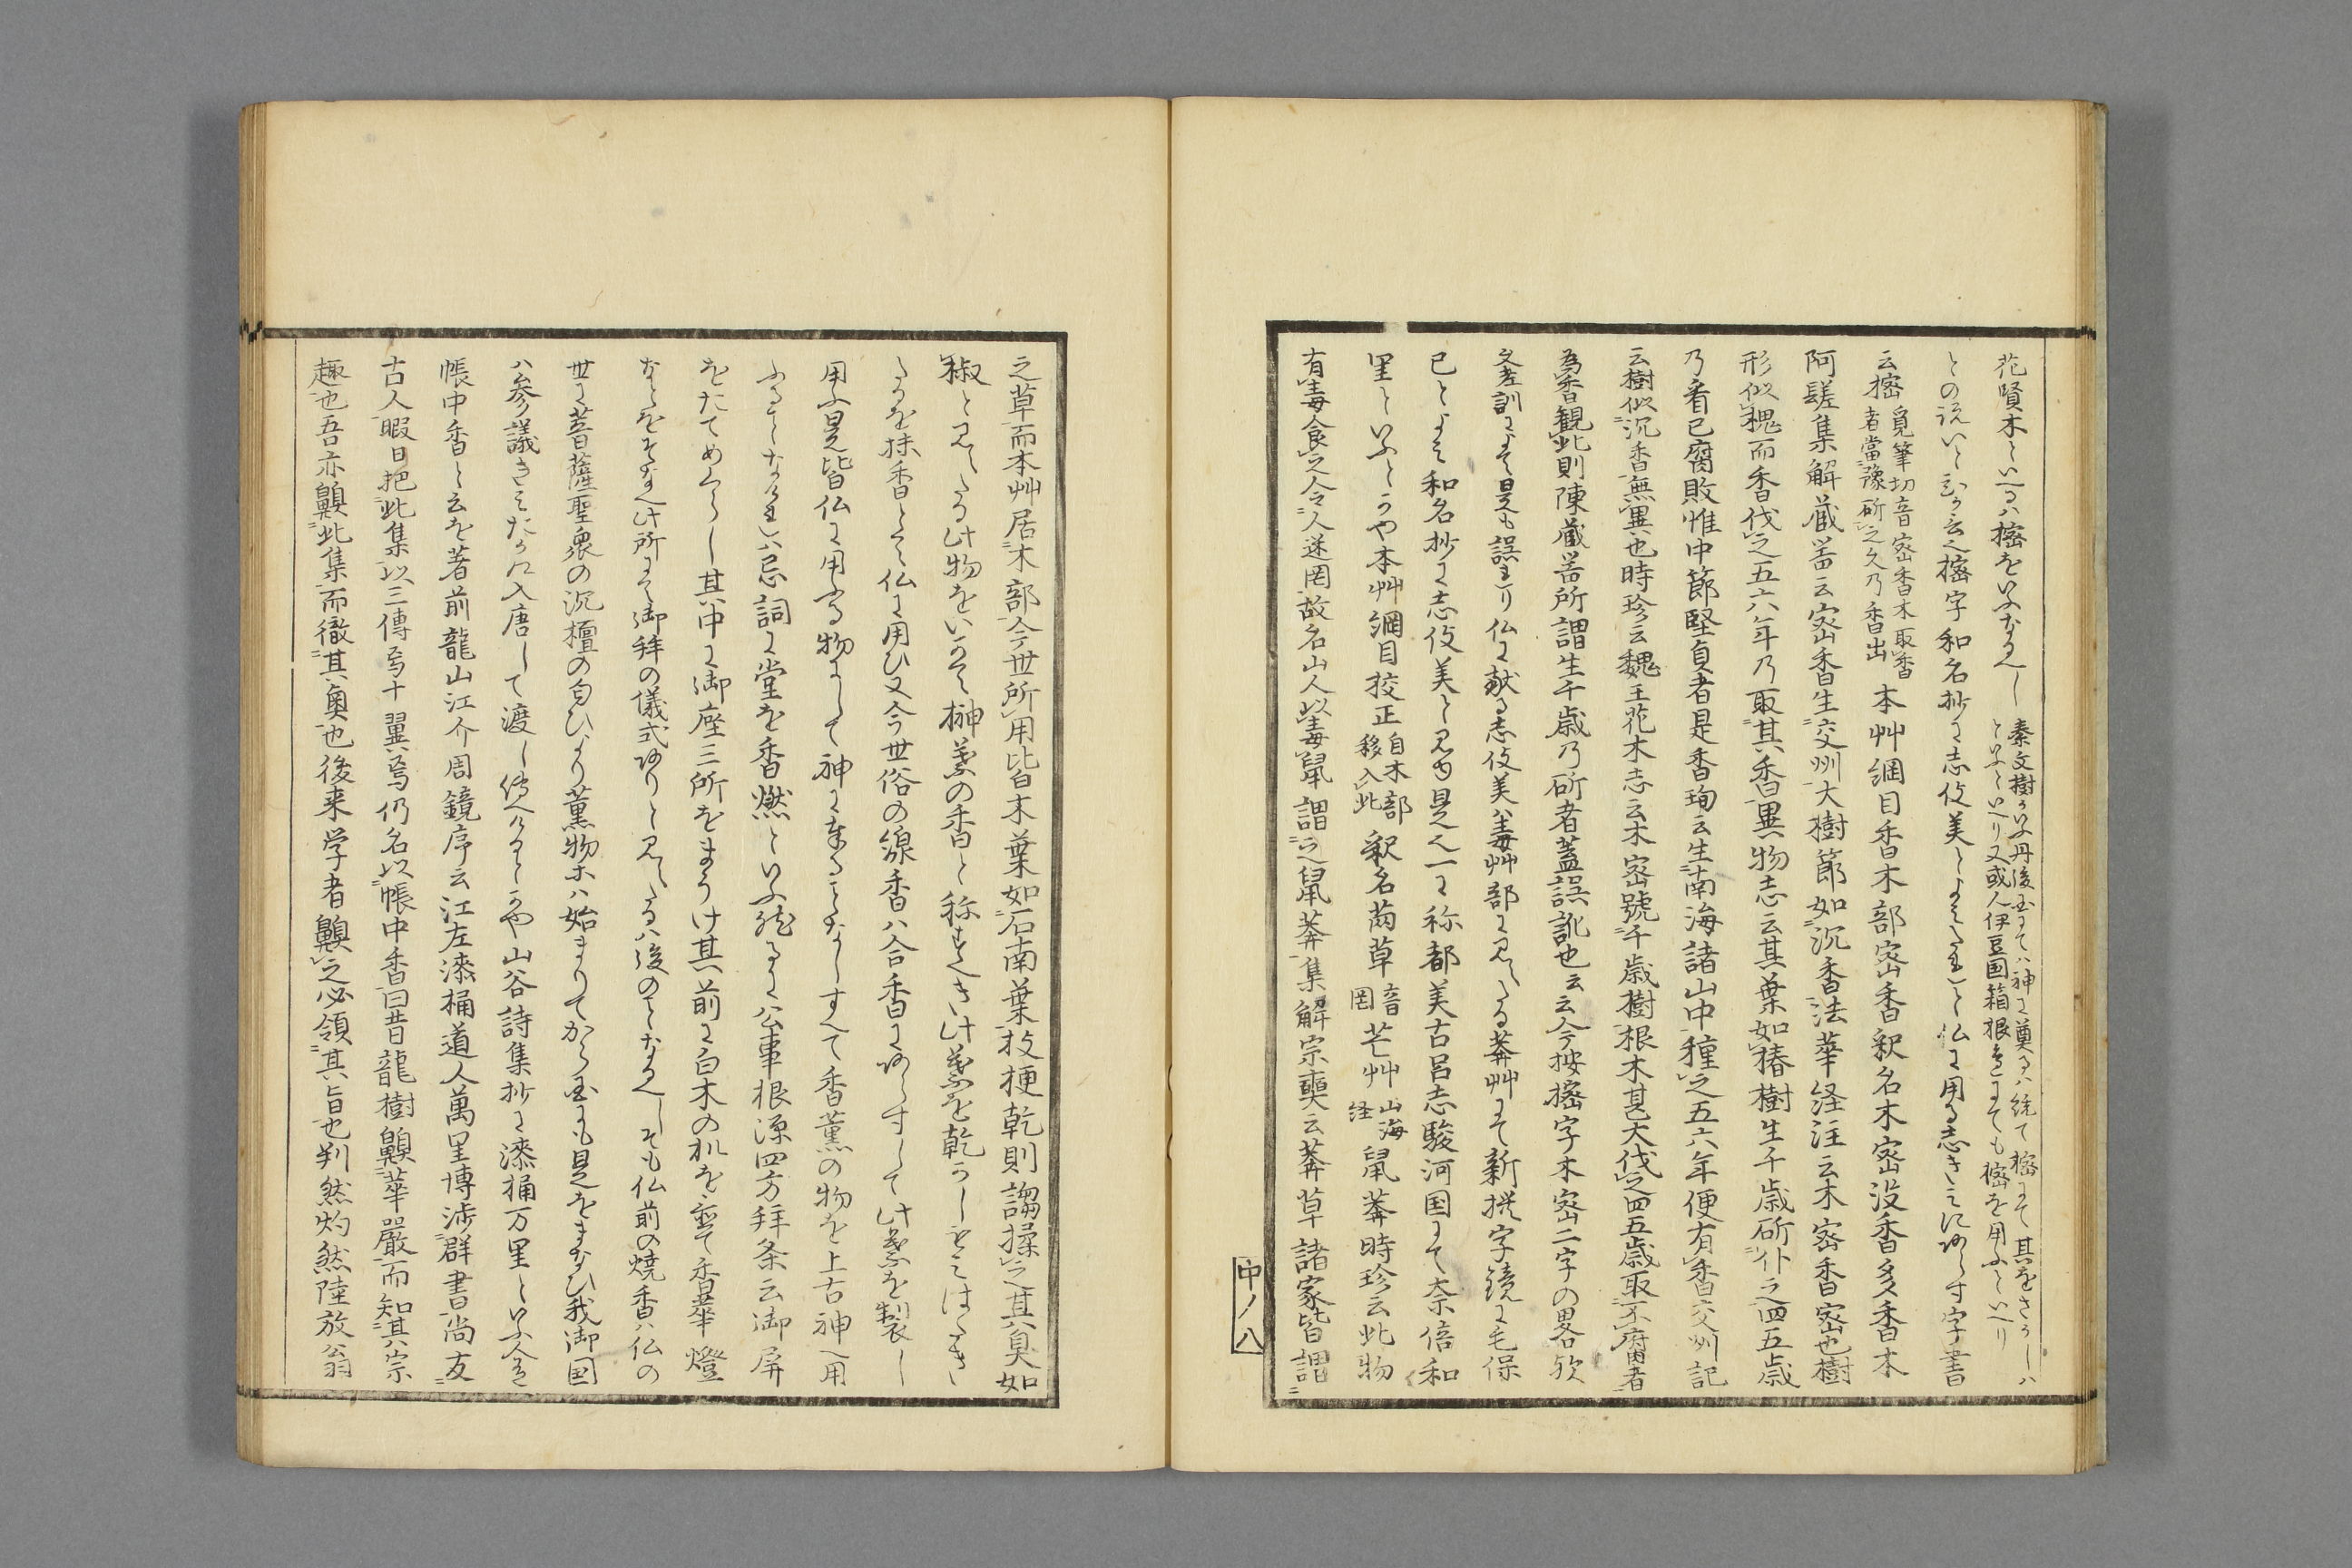 花賢木といへるハ樒をいふなるへし
秦文樹云丹後国にてハ神に奠るハ統て樒にて其をさかしハ
といふといへり又或人伊豆国箱根辺にても樒を用ふといへり
との説いとひか云也樒字和名抄に志伎美とよみたれと仏に用る志きみにあらす字書
云樒
覓筆切音密香木取香
者當豫斫之久乃香出
本艸綱目香木部密香釈名木密没香多香木
阿𩭝集解蔵器云密香生交州大樹節如沉香法華経注云木密香密也樹
形似槐而香伐之五六年乃取其香異物志云其葉如椿樹生千歳斫仆之四五歳
乃看已腐敗惟中節堅貞者是香珣云生南海諸山中種之五六年便有香交州記
云樹似沉香無異也時珍云魏王花木志云木密號千歳樹根木甚大伐之四五歳取不腐者
為香観此則陳蔵器所謂生千歳乃斫者蓋誤訛也云云今按樒字木密二字の畧欤
文左訓によて是も誤まり仏に献る志伎美ハ毒艸部に見へたる莽艸にて新撰字鏡に毛保
已とよみ和名抄に志伎美と見ゆ是也一に称都美古呂志駿河国にて奈倍和
里といふとかや本艸綱目挍正
自木部
移入此
釈名䒽草
音
罔
芒艸
山海
経
鼠莽時珍云此物
有毒食之令人迷罔故名山人以毒鼠謂之鼠莽集解宗奭云莽草諸家皆謂
中ノ八
之草而本艸居木部今世所用皆木葉如石南葉枝梗乾則謅揉之其臭如
椒と見へたる此物をいかて榊葉の香と称すへき此葉を乾かしもみはたき
たるを抹香とて仏に用ひ又今世俗の線香ハ合香にあらすして此葉を製し
用ふ是皆仏に用ふる物にして神に奉ることなしすへて香薫の物を上古神ハ用
ふることなけれハ忌詞に堂を香燃といふ然るに公事根源四方拝条云御屏
をたてめくらし其中に御座三所をまうけ其前に白木の机を立て香華燈
なとをそなへ此所にて御拝の儀式ありと見へたるハ後のことなるへしそも仏前の焼香ハ仏の
世に菩薩聖衆の沉檀の匂ひより薫物ホハ始まりてから国にも是をまなひ我御国
ハ参議きみたか入唐して渡し侍へけるとかや山谷詩集抄に漆桶万里といふ人を
帳中香と云を著前龍山江介周鏡序云江左漆桶道人萬里博渉群書尚友
古人暇日把此集以三傳為十翼焉仍名以帳中香曰昔龍樹齅華嚴而知其宗
趣也吾亦齅此集而徹其奥也後来学者齅之必領其旨也判然灼然陸放翁